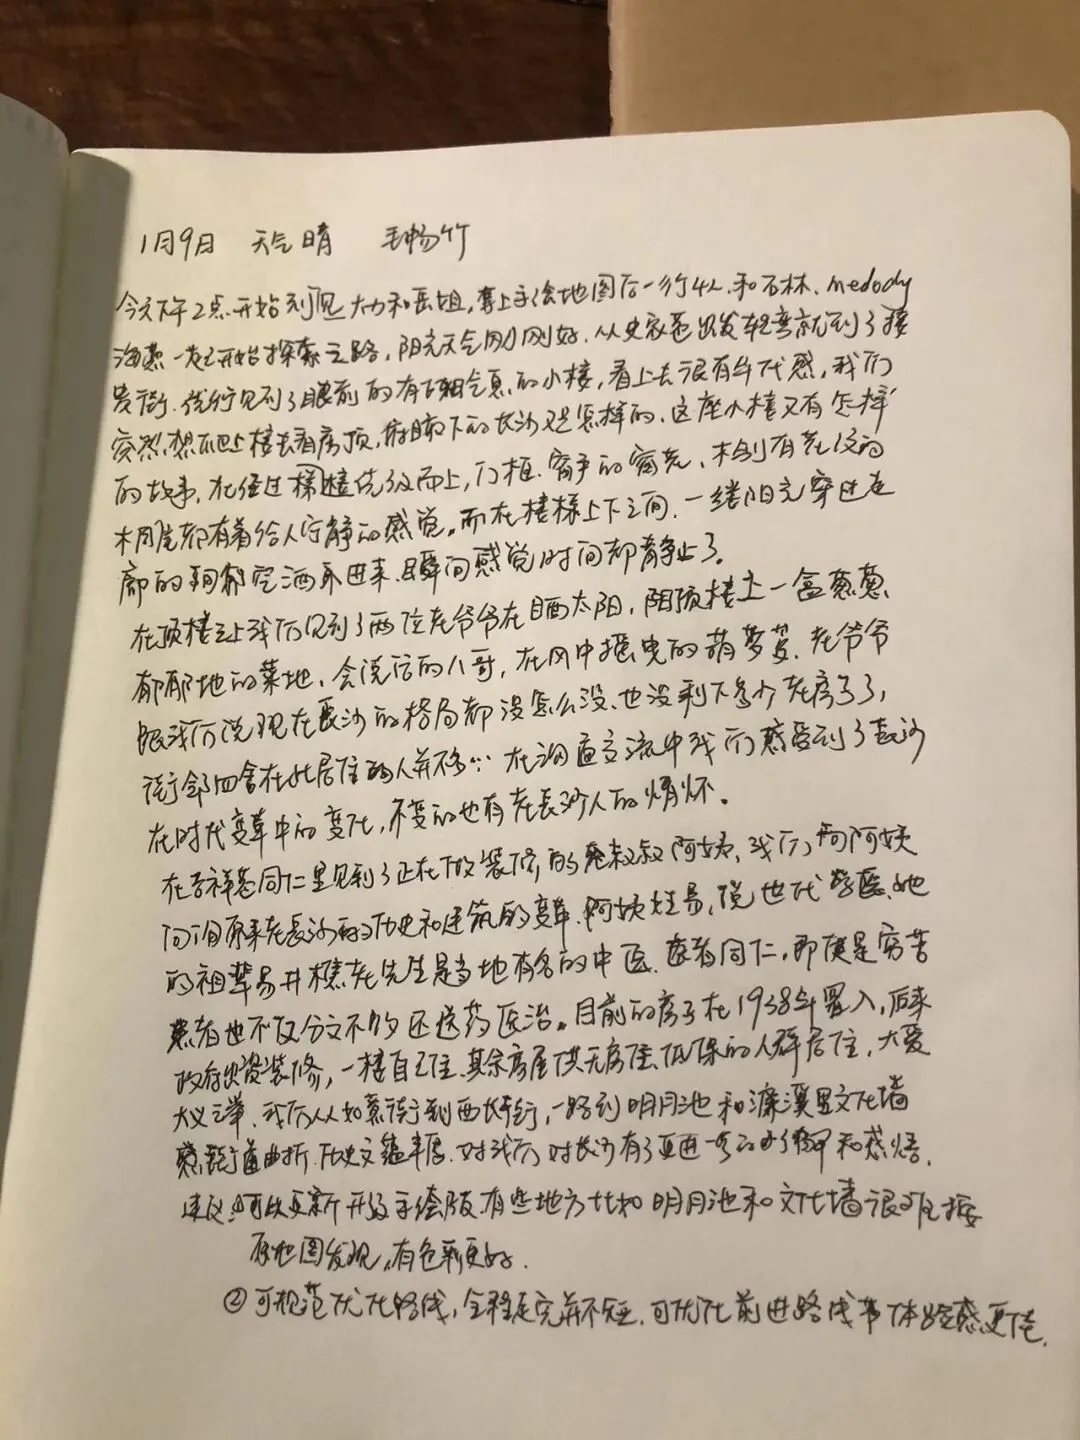 1月9日 天气晴 毛畅竹
今天下午2点开始到见大力和岳姐，拿上手绘地图后一行4人，和石林、medody
海燕一起开始探索之路，阳光天气刚刚好，从史家巷出发转弯就到了接
贵街，前行见到了眼前的有古朴气息的小楼，看上去很有年代感，我们
突然想爬上楼去看房顶，俯瞰下的长沙又是怎样的，这座小楼又有怎样
的故事，在经过楼梯依级而上，门框、窗户的窗花、木刻有花纹的
木门屋都有着给人宁静的感觉。而在楼梯上下之间，一缕阳光穿过走
廊的空洒了进来，瞬间感觉时间都静止了。
在顶楼之上我们见到了两位老爷爷在晒太阳，阳顶楼上一盒葱葱
郁郁地的菜地、会说话的八哥，在风中摇曳的葫芦蔓，老爷爷
跟我们说现在长沙的格局都没怎么没，也没剩下多少老房子了，
街邻四舍在此居住的人并不多… 在沟通交流中我们感受到了长沙
在时代变革中的变化，不变的也有老长沙人的情怀。
在吉祥巷同仁里见到了正在做装修的叔叔阿姨，我们向阿姨
问询原来老长沙的历史和建筑的变革，阿姨姓易，说世代学医，她
的祖辈易井樵老先生是当地有名的中医，医者同仁，即使是穷苦
患者也不仅分文不收还送药医治。目前的房子在1938年置入，后来
政府出资装修，一楼自己住，其余房屋供无房住、低保的人群居住，大爱
大义之举，我们从如意街到西长街行，一路到明月池和濂溪里文化墙
街道曲折，历史文蕴丰厚，对我们对长沙有了更进一步的了解和感悟。
建议：①可以更新升级手绘版，有些地方比如明月池和文化墙很难按
原地图发现，有色彩更好。
②可规范优化路线，全程走完并不短，可优化前进路线节体验感更佳。